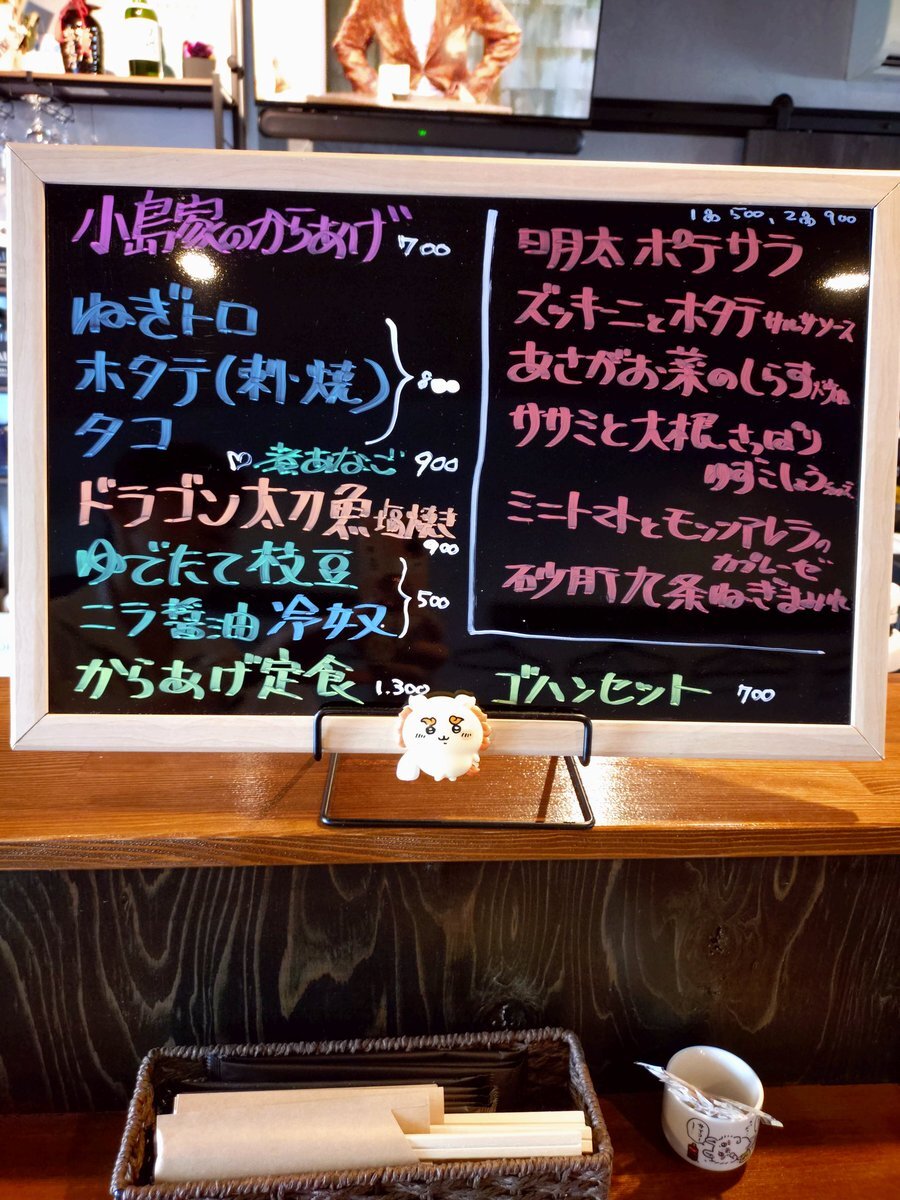 小島家のからあげ 700
ねぎトロ
ホタテ(刺・焼)
タコ
800
♡煮あなご 900
ドラゴン太刀魚塩焼き
900
ゆでたて枝豆
ニラ醤油冷奴
500
からあげ定食 1.300
1品 500、2品 900
明太ポテサラ
ズッキーニとホタテサルサソース
あさがお菜のしらす
ササミと大根さっぱり
ゆずこしょう
ミニトマトとモッツァレラの
カプレーゼ
砂肝九条ねぎまみれ
ゴハンセット 700